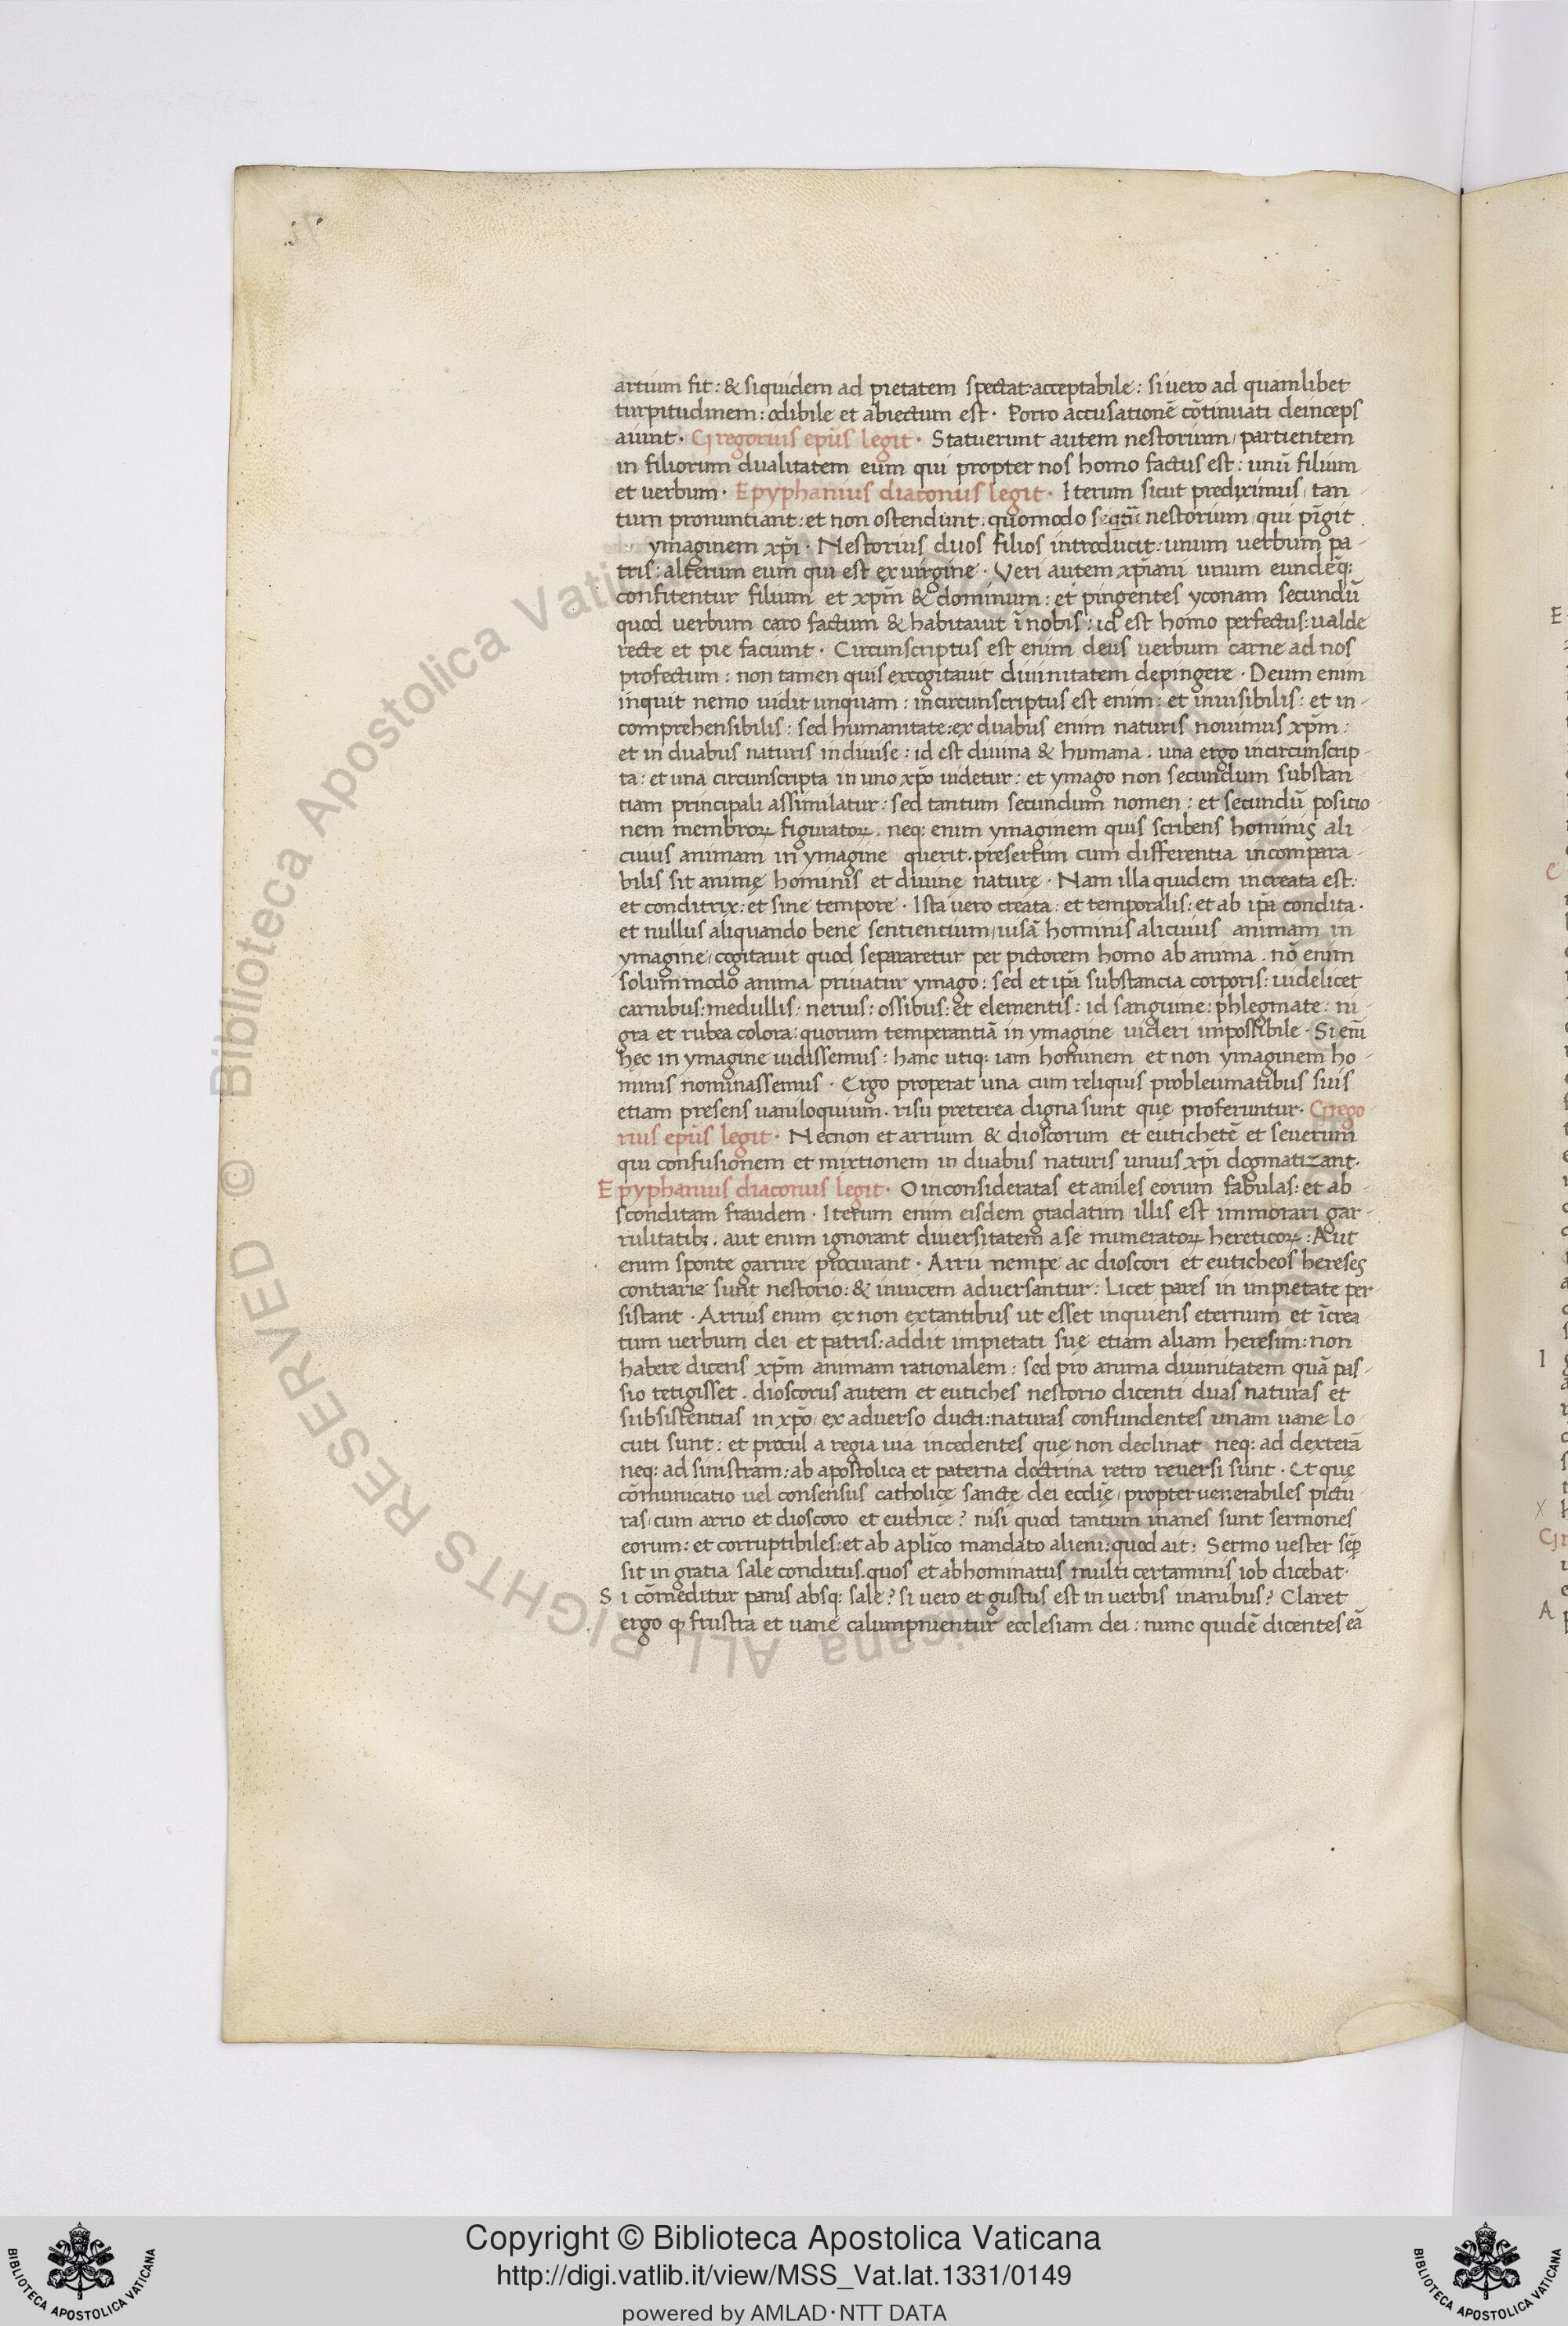 artium fit : & siquidem ad pietatem spectat acceptabile : si uero ad quamlibet
turpitudinem : odibile et abiectum est · Porro accusationē cōtinuati deinceps
aiunt · Gregorius ep̄us legit · Statuerunt autem nestorium / partientem
in filiorum dualitatem eum qui propter nos homo factus est : unū filium
et uerbum · Epyphanius diaconus legit · Iterum sicut prediximus / tan
tum pronuntiant : et non ostendunt : quomodo nestorium qui pīgit
ymaginem xp̄i · Nestorius duos filios introducit : unum uerbum pa-
tris : alterum eum qui est ex uirgine · Veri autem xp̄iani unum eundēq:
confitentur filium et xp̄m & dominum : et pingentes yconam secundū
quod uerbum caro factum & habitauit ī nobis : id est homo perfectus : ualde
recte et pie faciunt · Circunscriptus est enim deus uerbum carne ad nos
profectum : non tamen quis excogitauit diuinitatem depingere · Deum enim
inquit nemo uidit unquam : incircunscriptus est enim : et inuisibilis : et in-
comprehensibilis : sed humanitate : ex duabus enim naturis nouimus xp̄m :
et in duabus naturis indiuise : id est diuina & humana . una ergo incircunscrip-
ta : et una circunscripta in uno xp̄o uidetur : et ymago non secundum substan-
tiam principali assimilatur : sed tantum secundum nomen : et secundū positio-
nem membroꝝ figuratoꝝ . neq: enim ymaginem quis scribens hominis ali-
cuius animam in ymagine querit . presertim cum differentia incompara-
bilis sit animę hominis et diuinę naturę · Nam illa quidem increata est :
et conditrix : et sine tempore · Ista uero creata : et temporalis : et ab ip̄a condita ·
et nullus aliquando bene sentientium / uisā hominis alicuius animam in
ymagine / cogitauit quod separaretur per pictorem homo ab anima . nō enim
solummodo anima priuatur ymago : sed et ip̄a substancia corporis : uidelicet
carnibus : medullis : neruis : ossibus : et elementis : id sanguine : phlegmate : ni-
gra et rubea colora : quorum temperantiā in ymagine uideri impossibile · Si eni̅
hęc in ymagine uidissemus : hanc utiq: iam hominem et non ymaginem ho-
minis nominassemus · Ergo properat una cum reliquis probleumatibus suis
etiam presens uaniloquium . risu preterea digna sunt quę proferuntur · Grego
rius ep̄us legit · Necnon et arrium & dioscorum et eutichetē et seuerum
qui confusionem et mixtionem in duabus naturis unius xp̄i dogmatizant .
Epyphanius diaconus legit · O inconsideratas et aniles eorum fabulas : et ab-
sconditam fraudem · Iterum enim eisdem gradatim illis est immorari gar-
rulitatibꝫ . aut enim ignorant diuersitatem a se numeratoꝝ hereticoꝝ : Aut
enim sponte garrire procurant · Arrii nempe ac dioscori et euticheos hereses
contrarie sunt nestorio : & inuicem aduersantur : Licet pares in impietate per
sistant · Arrius enim ex non extantibus ut esset inquiens eternum et īcrea
tum uerbum dei et patris : addit impietati suę etiam aliam heresim : non
habere dicens xp̄m animam rationalem : sed pro anima diuinitatem quā pas-
sio tetigisset . dioscorus autem et eutiches nestorio dicenti duas naturas et
subsistentias in xp̄o / ex aduerso ducti : naturas confundentes unam uane lo
cuti sunt : et procul a regia uia incedentes quę non declinat neq: ad dexterā
neq: ad sinistram : ab apostolica et paterna doctrina retro reuersi sunt · Et quę
cōmunicatio uel consensus catholicę sanctę dei eccl̄ię / propter uenerabiles pictu
ras / cum arrio et dioscoro et euthice ? nisi quod tantum inanes sunt sermones
eorum : et corruptibiles : et ab apl̄ico mandato alieni : quod ait : Sermo uester sēp
sit in gratia sale conditus . quos et abhominatus multi certaminis iob dicebat ·
Si cōmeditur panis absq: sale ? si uero et gustus est in uerbis inanibus ? Claret
ergo ꝙ frustra et uane calumpnientur ecclesiam dei : nunc quidē dicentes eā
Copyright © Biblioteca Apostolica Vaticana
http://digi.vatlib.it/view/MSS_Vat.lat.1331/0149
powered by AMLAD·NTT DATA